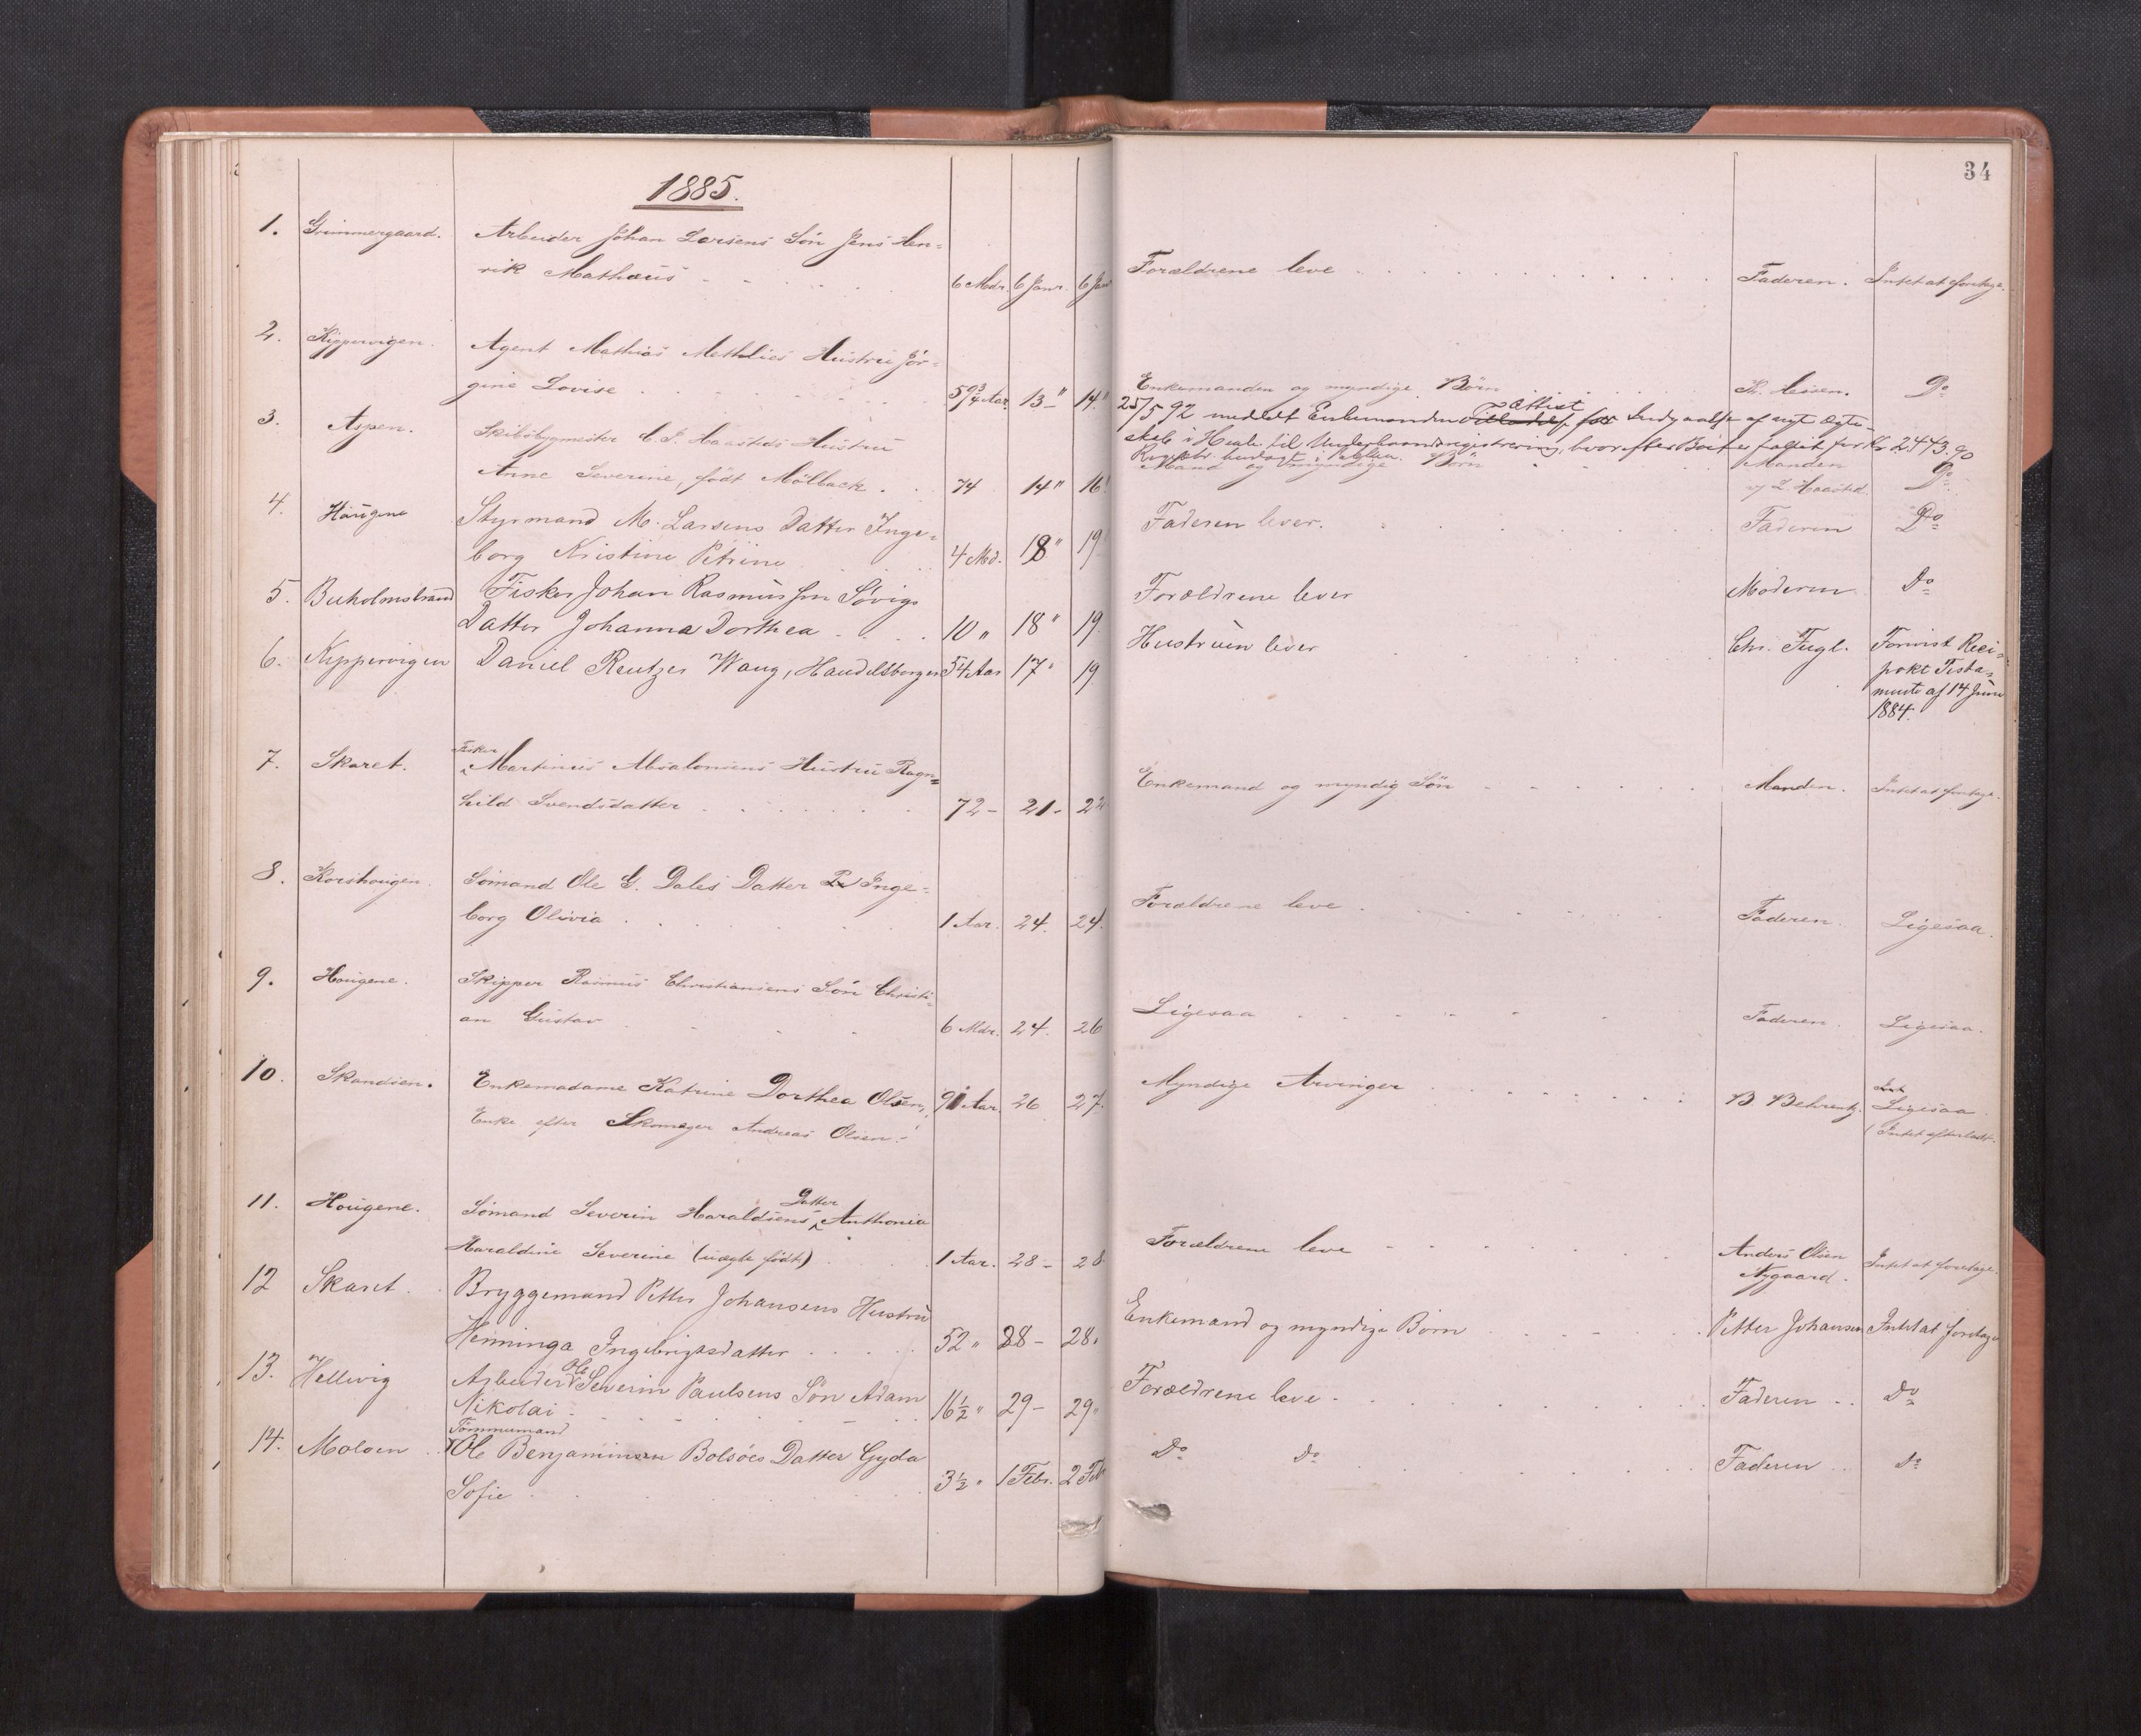 34
1885.
1. Grimmergaard. Arbeider Johan Larsens Søn Jens Hen-
rik Mathæus 6 Mdr. 6 Janr. 6 Jan Forældrene leve Faderen. Intet at foretage.
2. Kippervigen. Agent Mathias Methlies Hustru Jör-
gine Lovise 59 3/4 Aar. 13 " 14 " Enkemanden og myndige Börn Do
25/5 92 meddelt Enkemanden Attest for Indgaaelse af nyt Ægte-
skab i Henh. til Underhaandsregistrering, hvorefter Boet er fallit for Kr 2443.90
3. Aspen. Skibsbygmester C. J. Haasteds Hustru Mand og myndige Börn Manden
Anne Severine, født Mölback. 74 14 " 16 " v/ L. Haasted Do
4. Haugene Styrmand M. Larsens Datter Inge-
borg Kristine Petrine 4 Md. 18 " 19 " Faderen lever. Faderen Do
5. Buholmstrand Fisker Johan Rasmussen Søvigs
Datter Johanna Dorthea 10 " 18 " 19 Forældrene lever Moderen Do
6. Kippervigen Daniel Reutzer Waug, Handelsborger 54 Aar 17 " 19 Hustruen lever Chr. Fugl. Formst Reci-
prokt Testa-
mente af 14 Juni
1884.
7. Skaret. Fisker Martinus Absalonsens Hustru Ragn-
hild Svendsdatter 72 - 21 - 22 Enkemand og myndig Søn Manden. Intet at foretage.
8. Korshougen. Sömand Ole G. Dales Datter Inge-
borg Olivia 1 Aar. 24. 24. Forældrene leve Faderen. Ligesaa.
9. Hougene. Skipper Rasmus Christiansens Søn Christi-
an Gustav 6 Mdr. 24. 26 Ligesaa Faderen. Ligesaa.
10. Skandsen. Enkemadame Katrine Dorthea Olsen, 91 Aar. 26 27. Myndige Arvinger B. Behrentz. Ligesaa
Enke efter Skomager Andreas Olsen. / Intet efterladt.
11. Hougene. Sömand Severin Haraldsens Datter Anthonia
Haraldine Severine (uægte født) 1 Aar. 28 - 28 Forældrene leve Anders Olsen
Nygaard. Intet at foretage.
12 Skaret. Bryggemand Petter Johansens Hustru
Heminga Ingebrigtsdatter 52 " 28 - 28. Enkemand og myndige Börn Petter Johansen Intet at foretage
13. Hellevig Arbeider Ole Severin Paulsens Søn Adam
Nikolai 16 1/2 " 29 - 29 " Forældrene leve Faderen Do
14. Moloen Tømmermand Ole Benjaminsen Bolsöes Datter Gyda
Sofie 3 1/2 " 1 Febr. 2 Feb Do Do Faderen Do